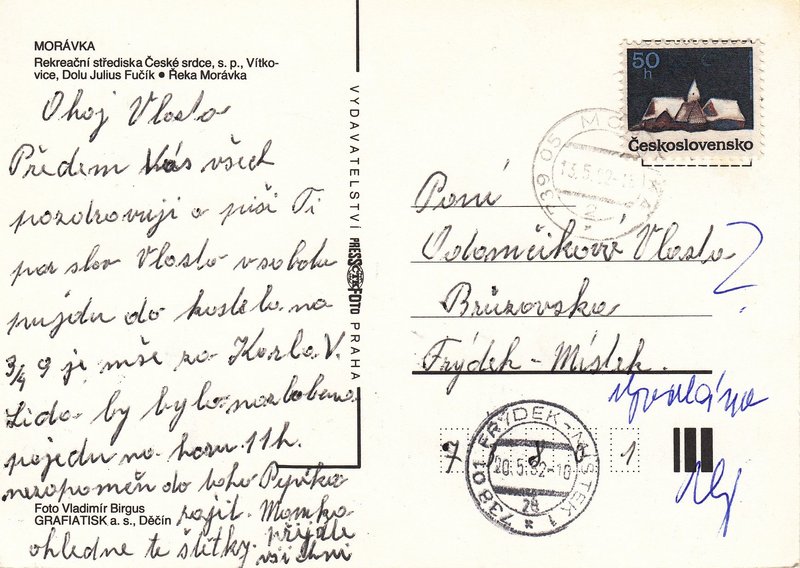 MORÁVKA
Rekreační střediska České srdce, s. p., Vítko-
vice, Dolu Julius Fučík ● Řeka Morávka
Ohoj Vlasto
Předem Vás všech
pozdrovuji a píši Ti
par slov Vlasto v sobotu
pujdu do kostela na
3/4 9 je mše za Karla V.
Lida by byla nazlobena
pojedu na horu 11 h.
nezapoměn do toho Pypíka
zajit. Monka
ohledne te štítky. přijdte
všichni
Foto Vladimír Birgus
GRAFIATISK a. s., Děčín
VYDAVATELSTVÍ PRESSFOTO PRAHA
50
h
Československo
739 05 MORÁVKA
13.5.92-11
2
Paní
Adamčíková Vlasta ?
Brůzovska
Frýdek - Místek.
738 01 FRÝDEK-MÍSTEK 1
20.5.92-10
28
7 8 1